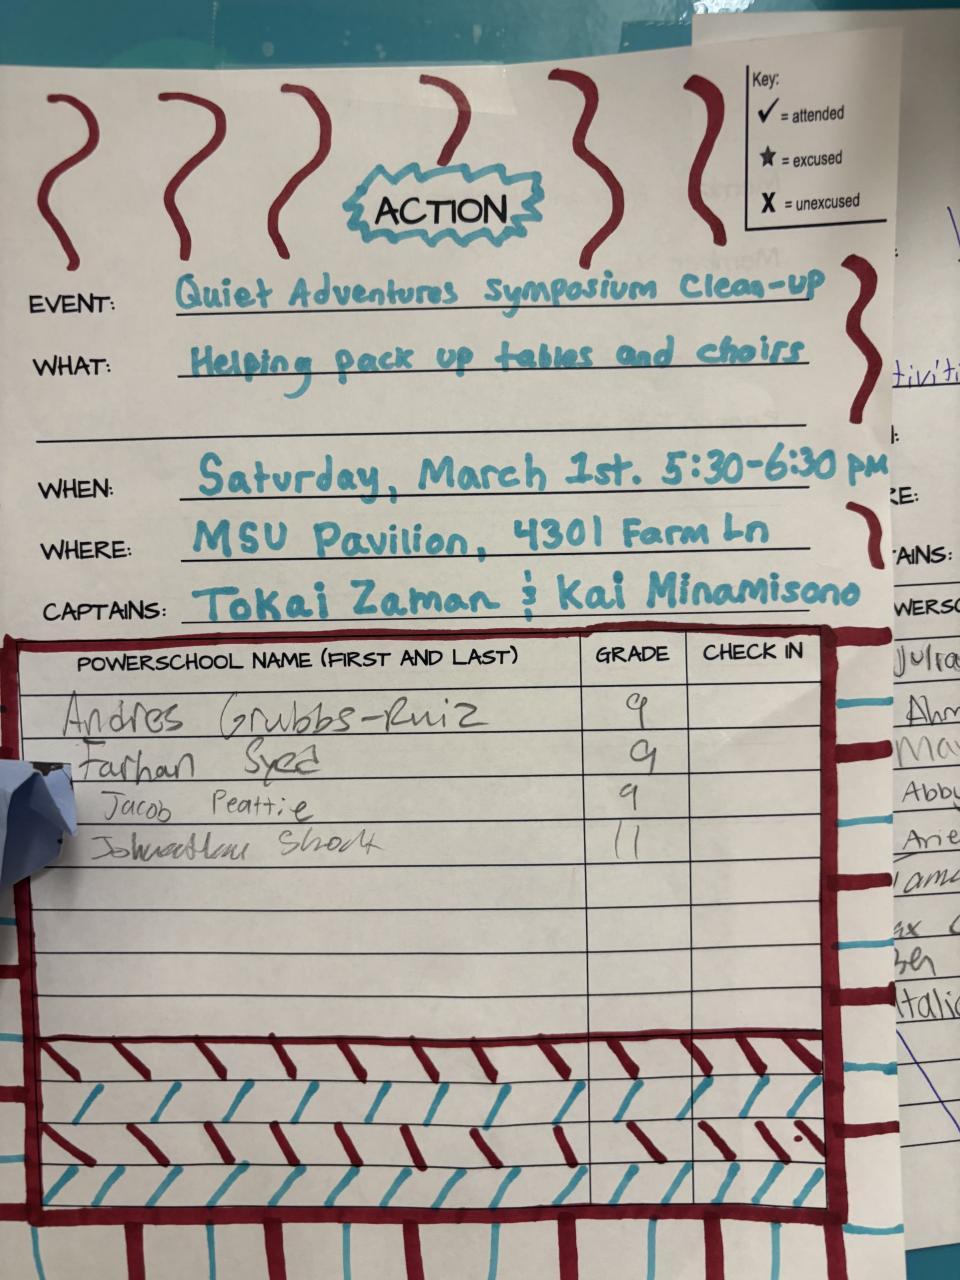 Key:
✓ = attended
★ = excused
X = unexcused
ACTION
EVENT: Quiet Adventures Symposium Clean-up
WHAT: Helping pack up tables and chairs
WHEN: Saturday, March 1st. 5:30-6:30 PM
WHERE: MSU Pavilion, 4301 Farm Ln
CAPTAINS: Tokai Zaman & Kai Minamisono
POWERSCHOOL NAME (FIRST AND LAST) GRADE CHECK IN
Andres Grubbs-Ruiz 9
Farhan Syed 9
Jacob Peattie 9
11
tiviti
RE:
AINS:
WERSC
Julia
Ahm
Mav
Abby
Arie
Italic